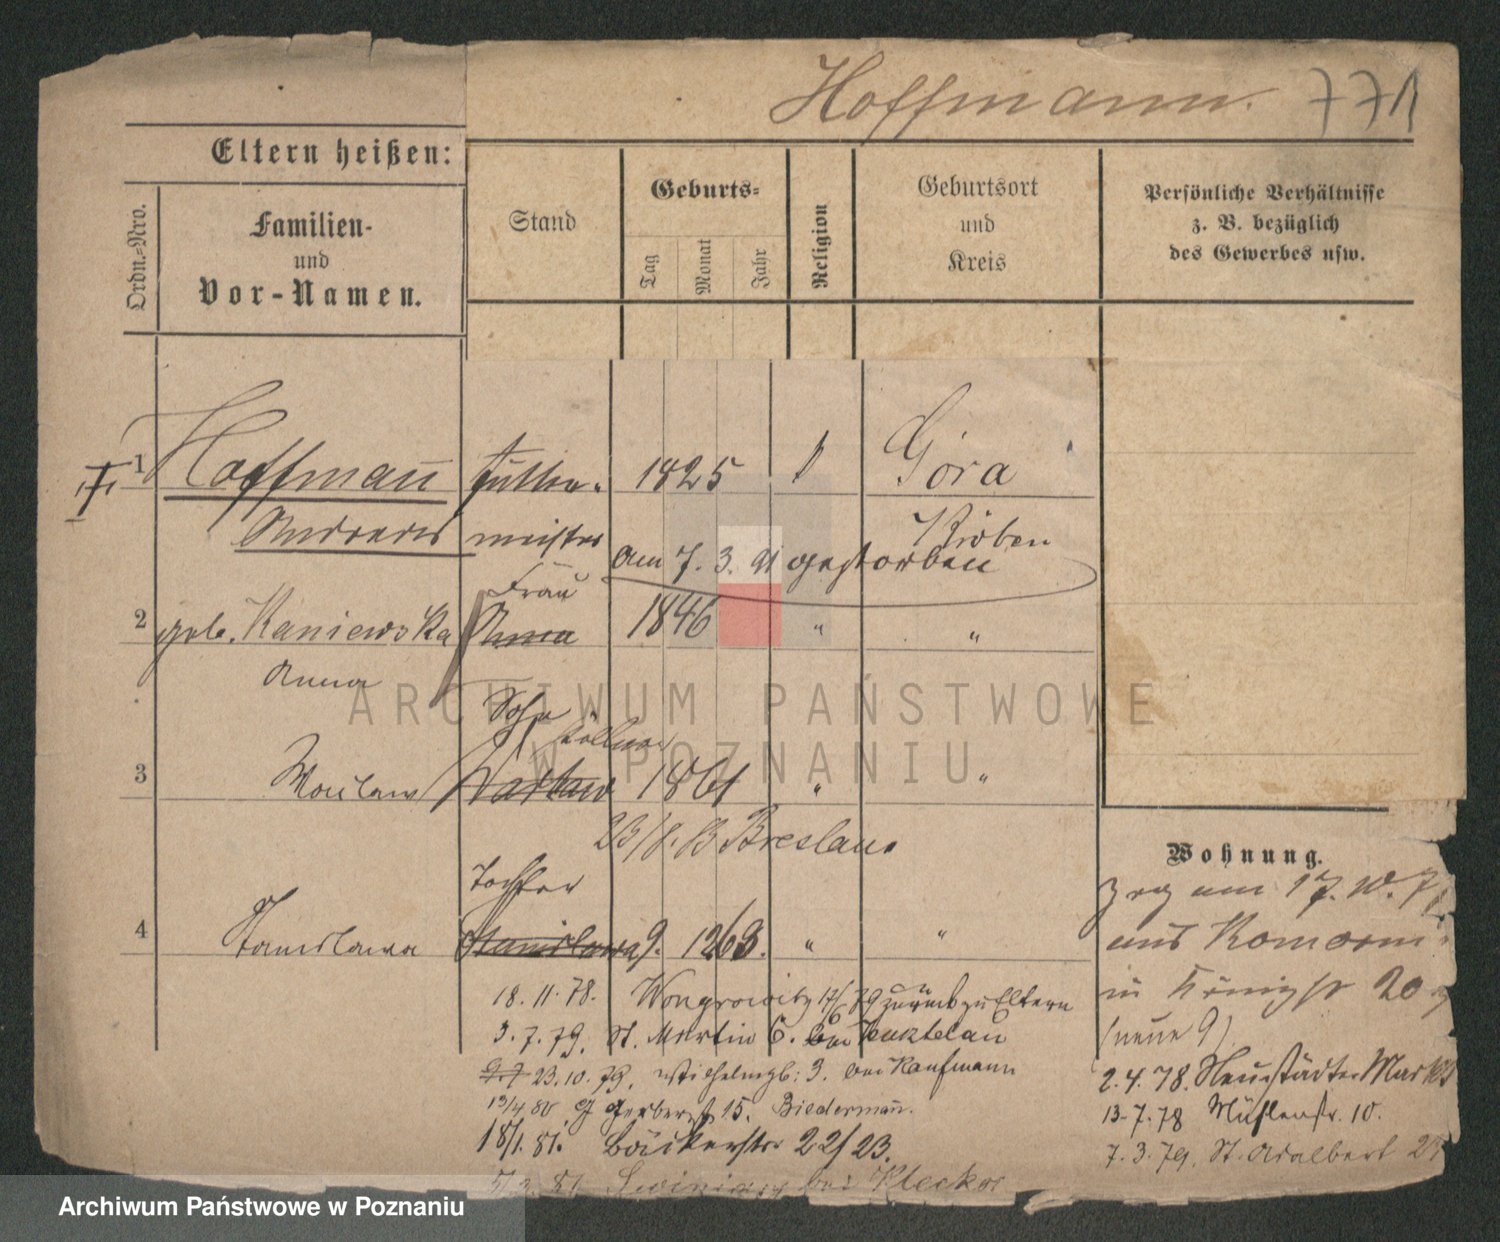 Hoffmann. 771
Eltern heißen:
Ordn.-Nro.
Familien-
und
Vor-Namen.
Stand
Geburts-
Tag
Monat
Jahr
Religion
Geburtsort
und
Kreis
Persönliche Verhältnisse
z. B. bezüglich
des Gewerbes usw.
1 Hoffmann 1825 Góra
Andreas meister Kröben
am 7. 3. 91 gestorben
Frau
2 geb. Kaniewska Anna 1846 " "
Anna
Sohn
3 Waclaw 1861 " "
Breslau
Tochter
4 Stanislawa Stanislawa 9. 12 63. " "
18. 11. 78. Wongrowitz 17/6 79 zurück zu Eltern
3. 7. 79. St. Martin 6. bei
23. 10. 79. Wilhelmspl: 3. bei Kaufmann
13/4 80 Gerberst 15. Biedermann.
18/1. 81. Bäckerstr 22/23.
bei Klecko
Wohnung.
Zog am 17. 10. 7
aus
in Königstr 20
(neue 9)
2. 4. 78. Neustädter Markt
13. 7. 78 Mühlenstr. 10.
7. 3. 79. St. Adalbert
ARCHIWUM PAŃSTWOWE
W POZNANIU
Archiwum Państwowe w Poznaniu